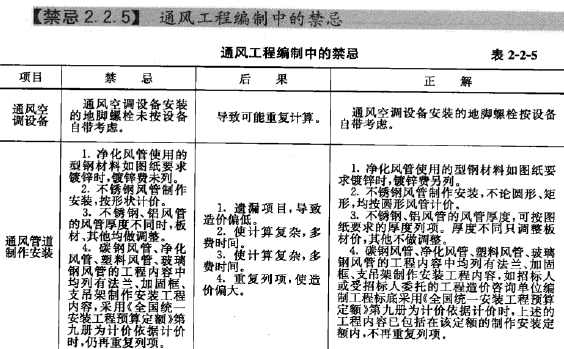 【禁忌2.2.5】 通风工程编制中的禁忌
通风工程编制中的禁忌 表2-2-5
项目 禁忌 后果 正解
通风空
调设备
通风空调设备安装
的地脚螺栓未按设备
自带考虑。
导致可能重复计算。
通风空调设备安装的地脚螺栓按设备
自带考虑。
通风管道
制作安装
1. 净化风管使用的
型钢材料如图纸要求
镀锌时,镀锌费未列。
2. 不锈钢风管制作
安装,按形状计价。
3. 不锈钢、铝风管
的风管厚度不同时,板
材、其他均做调整。
4. 碳钢风管、净化
风管、塑料风管、玻璃
钢风管的工程内容中
均列有法兰、加固框、
支吊架制作安装工程
内容,采用《全国统一
安装工程预算定额》第
九册为计价依据计价
时,仍再重复列项。
1. 遗漏项目,导致
造价偏低。
2. 使计算复杂,多
费时间。
3. 使计算复杂,多
费时间。
4. 重复列项,使造
价偏大。
1. 净化风管使用的型钢材料如图纸要
求镀锌时,镀锌费另列。
2. 不锈钢风管制作安装,不论圆形、矩
形,均按圆形风管计价。
3. 不锈钢、铝风管的风管厚度,可按图
纸要求的厚度列项。厚度不同只调整板
材价,其他不做调整。
4. 碳钢风管、净化风管、塑料风管、玻璃
钢风管的工程内容中均列有法兰、加固
框、支吊架制作安装工程内容,如招标人
或受招标人委托的工程造价咨询单位编
制工程标底采用《全国统一安装工程预算
定额》第九册为计价依据计价时,上述的
工程内容已包括在该定额的制作安装定
额内,不再重复列项。